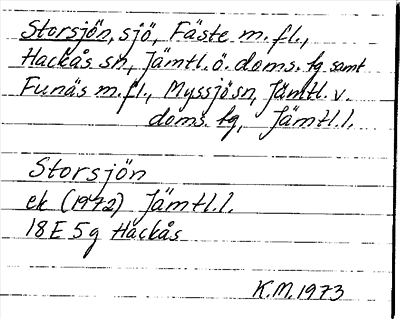 Storsjön, sjö, Fäste m.fl.,
Hackås sn, Jämtl. ö. doms. tg samt
Funäs m.fl., Myssjö sn, Jämtl. v.
doms. tg, Jämtl.l.
Storsjön
ek (1972) Jämtl.l.
18E 5g Hackås
K.M. 1973